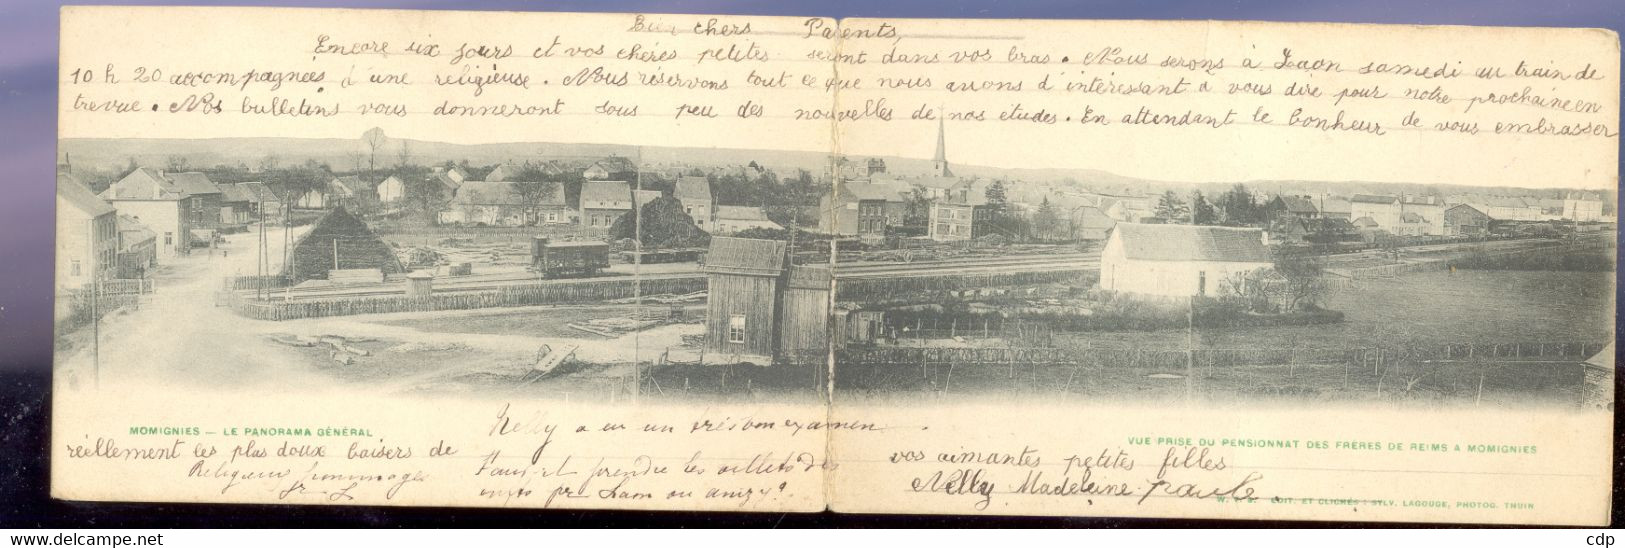 Bien chers Parents,
Encore six jours et vos chères petites seront dans vos bras. Nous serons à Laon samedi au train de
10 h 20 accompagnées d'une religieuse. Nous réservons tout ce que nous avons d'intéressant à vous dire pour notre prochaine en
trevue. Nos bulletins vous donneront sous peu des nouvelles de nos études. En attendant le bonheur de vous embrasser
MOMIGNIES — LE PANORAMA GÉNÉRAL
VUE PRISE DU PENSIONNAT DES FRÈRES DE REIMS A MOMIGNIES
réellement les plus doux baisers de
vos aimantes petites filles
Nelly Madeleine Paule.
Nelly a eu un très bon examen.
Faut-il prendre les billets des
pr Laon ou Anizy?
Religieux hommages
EDIT. ET CLICHÉS : SYLV. LAGOUGE, PHOTOG. THUIN
www.delcampe.net
cdp